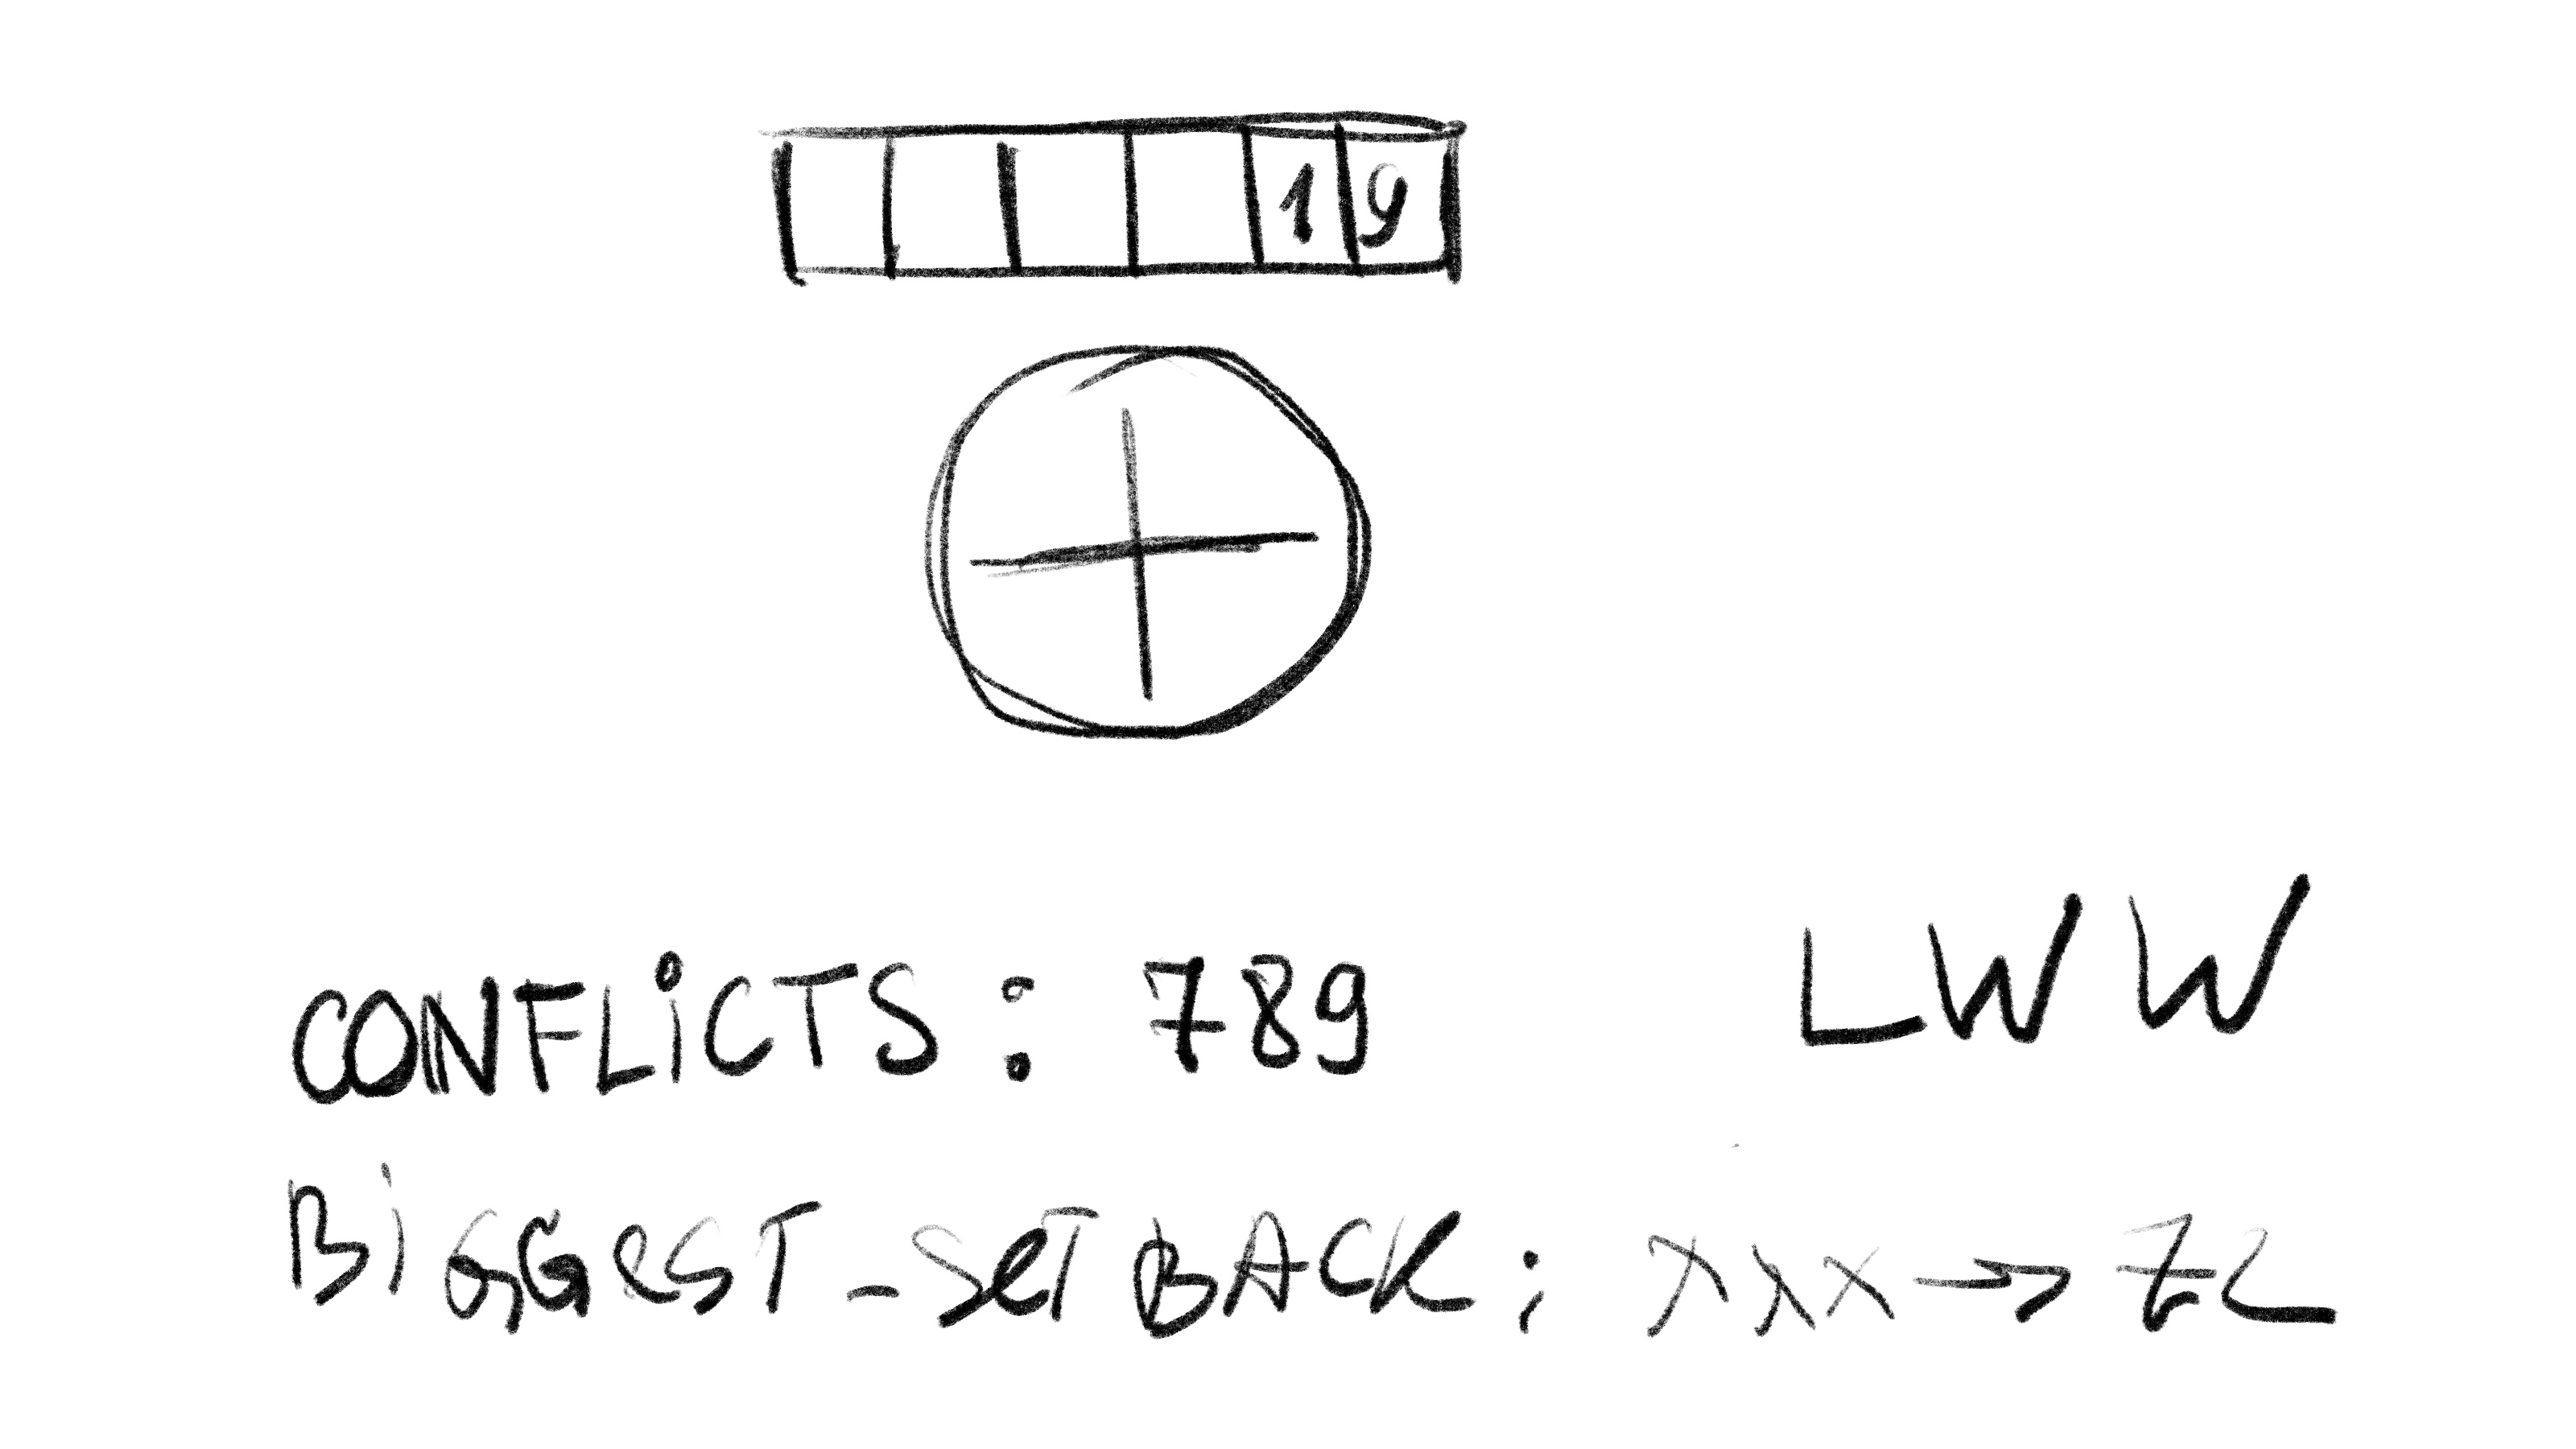 19
CONFLiCTS: 789 LWW
BiGGeST_SeTBACK: xxx→ZZ